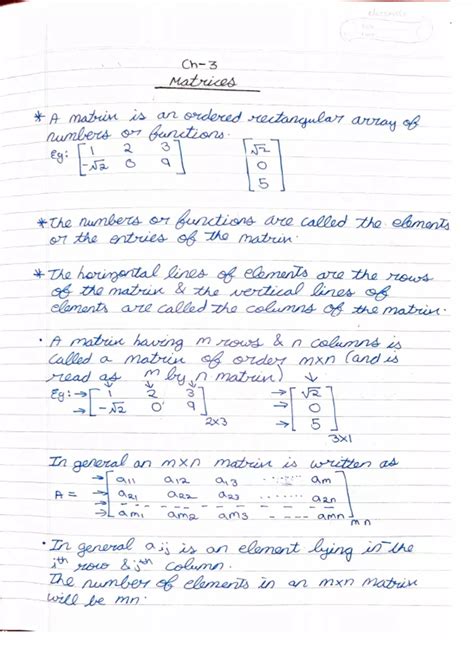 Ch-3
Matrices
* A matrix is an ordered rectangular array of
numbers or functions.
Eg: [1 2 3] [√2]
[-√2 0 9] [0]
[5]
* The numbers or functions are called the elements
or the entries of the matrix.
* The horizontal lines of elements are the rows
of the matrix & the vertical lines of
elements are called the columns of the matrix.
• A matrix having m rows & n columns is
called a matrix of order m×n (and is
read as m by n matrix)
↓ ↓ ↓ ↓
Eg: → [1 2 3] → [√2]
→ [-√2 0 9] 2×3 → [0]
→ [5] 3×1
In general an m×n matrix is written as
→ [a11 a12 a13 ...... am]
A = → [a21 a22 a23 ...... a2n]
→ [am1 am2 am3 ---- amn] mn
• In general aij is an element lying in the
ith row & jth column.
The number of elements in an m×n matrix
will be mn.